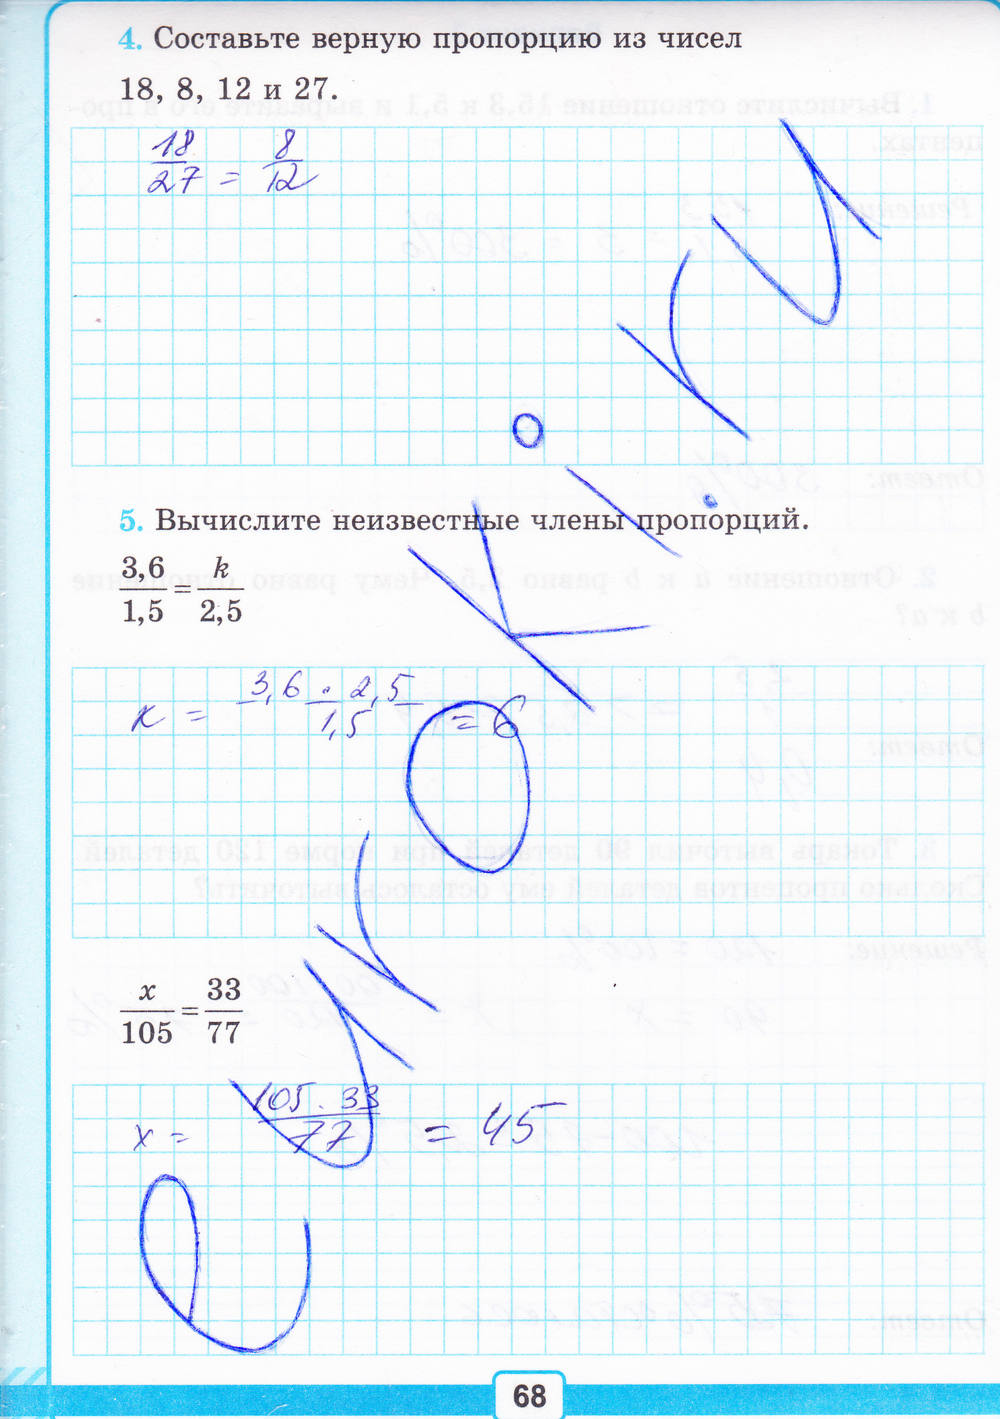 4. Составьте верную пропорцию из чисел
18, 8, 12 и 27.
18/27 = 8/12
5. Вычислите неизвестные члены пропорций.
3,6/1,5 = k/2,5
к = 3,6 · 2,5/1,5 = 6
x/105 = 33/77
x = 105 · 33/77 = 45
eurOKi.ru
68